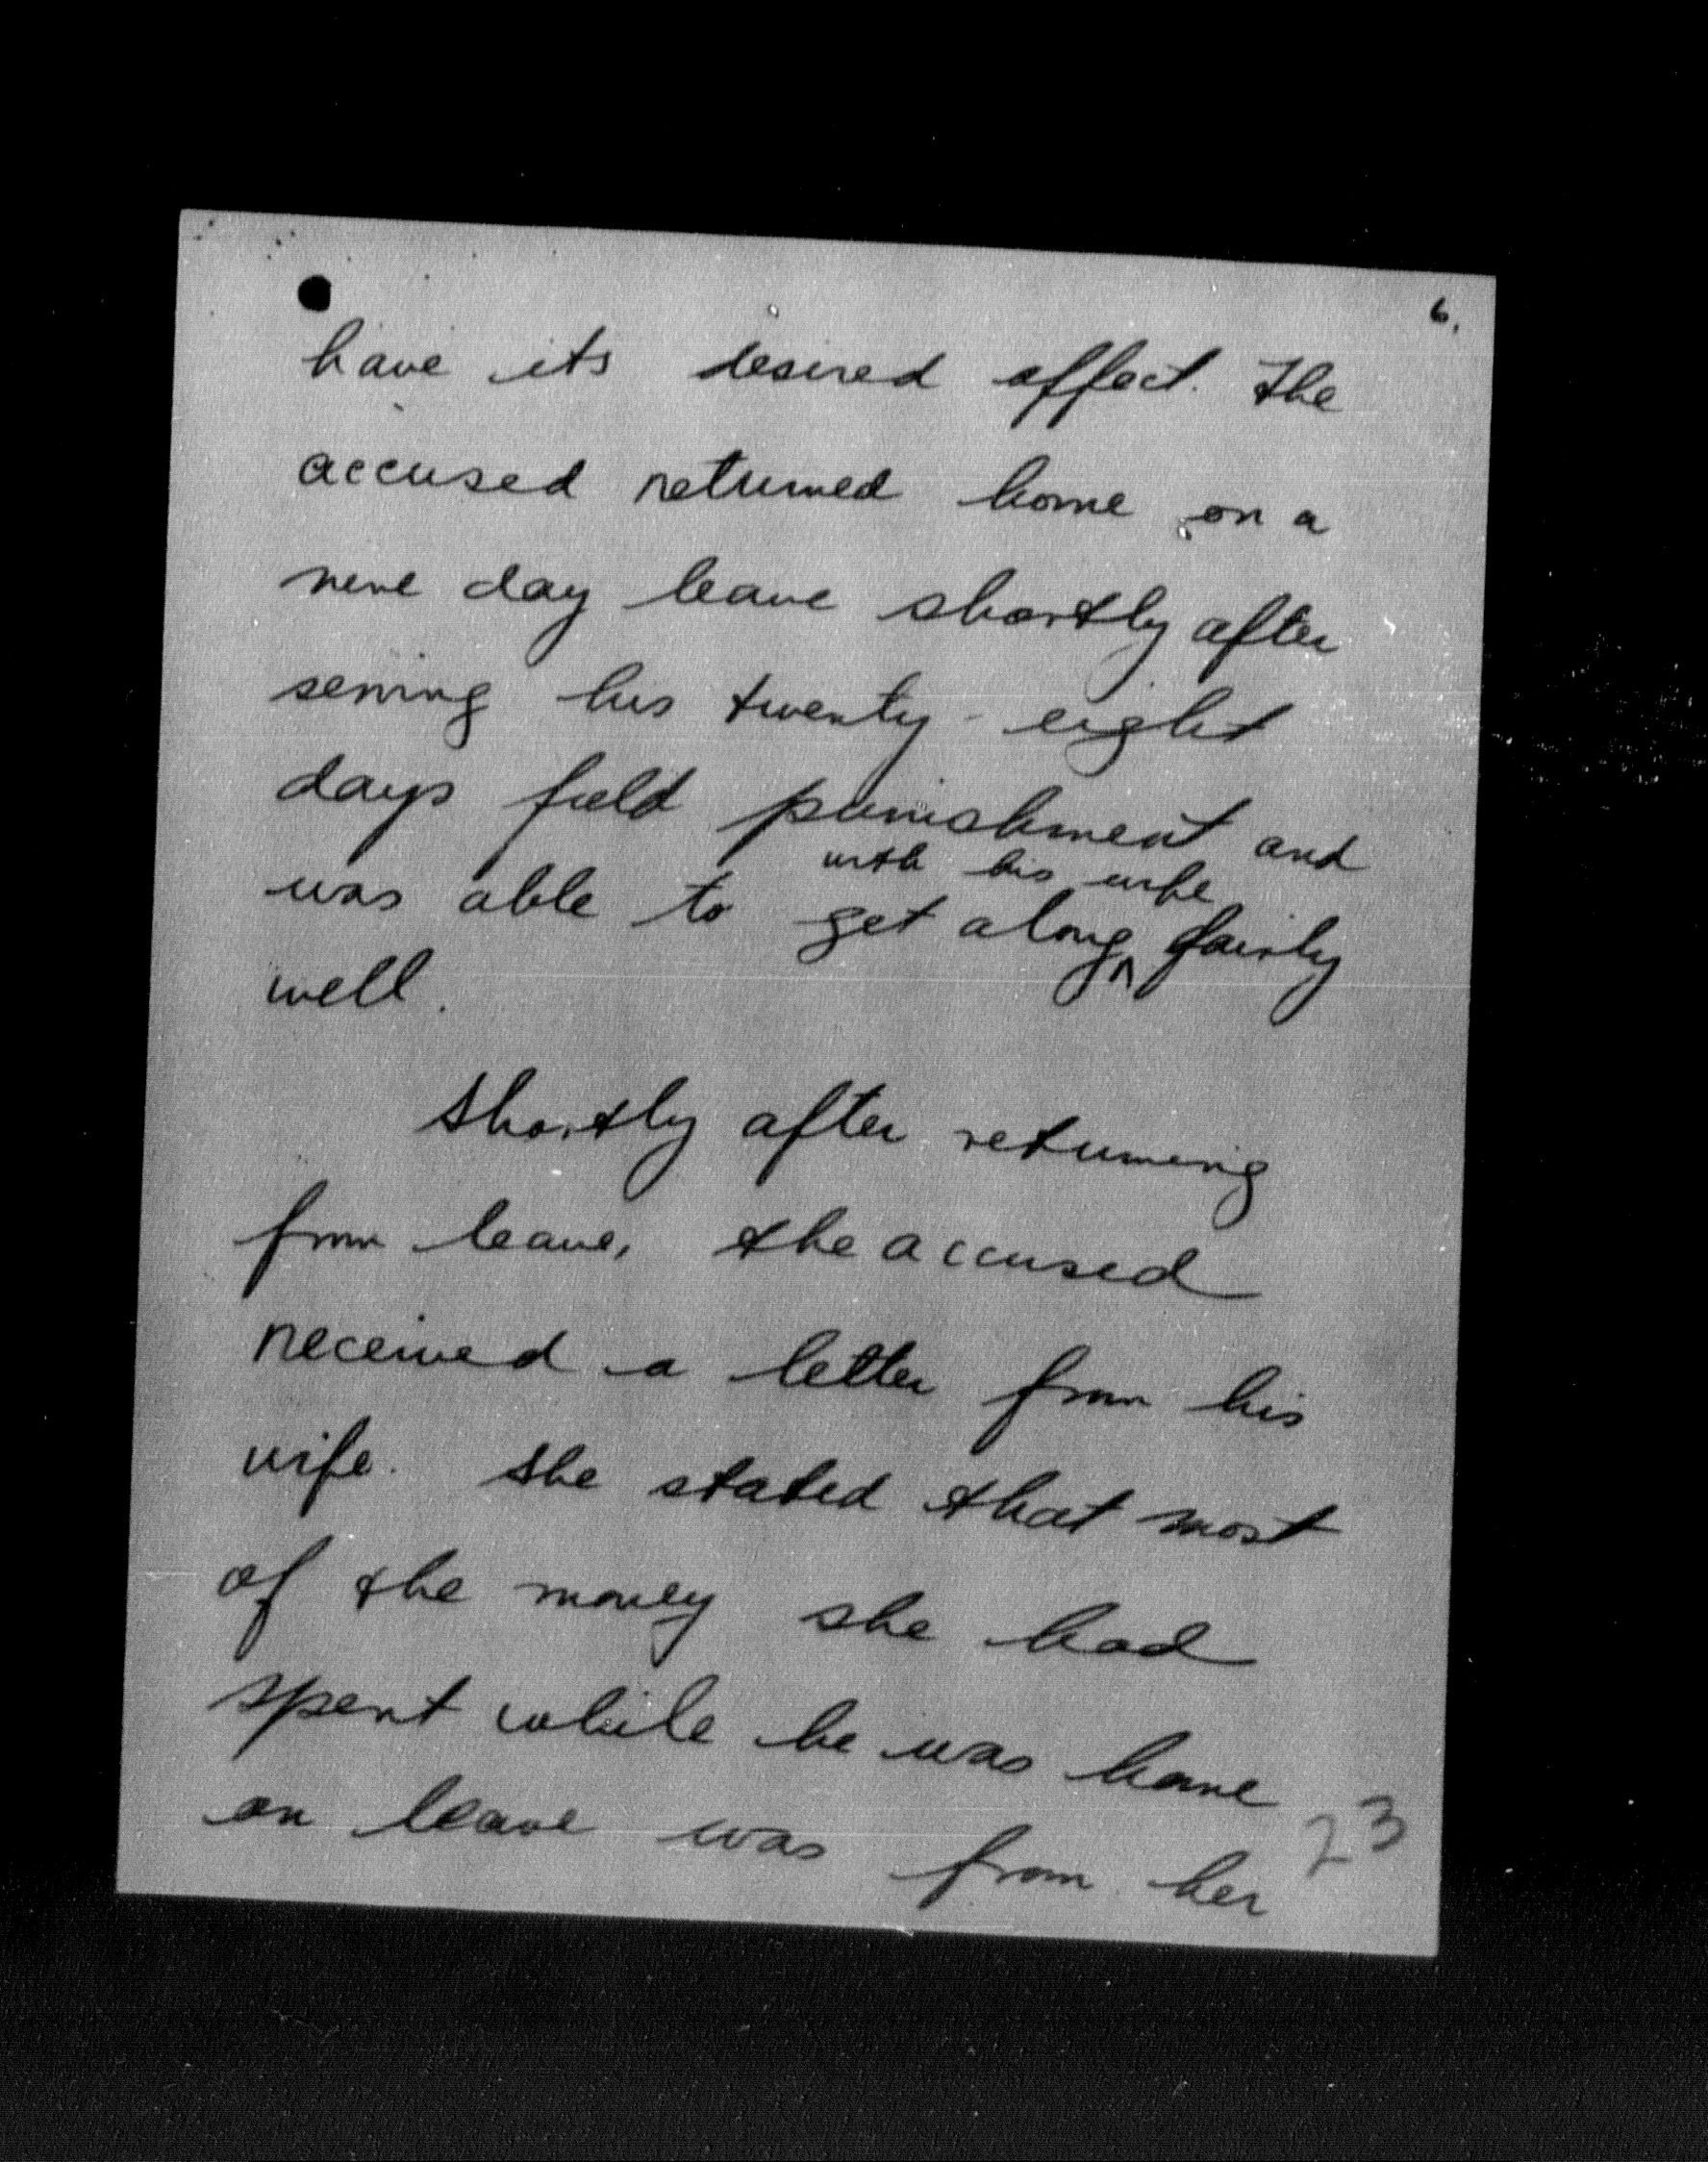 6.
have its desired effect. The
accused returned home on a
nine day leave shortly after
serving his twenty-eight
days field punishment and
with his wife
was able to get along ^ fairly
well.
Shortly after returning
from leave, the accused
received a letter from his
wife. She stated that most
of the money she had
spent while he was home
on leave was from her
23